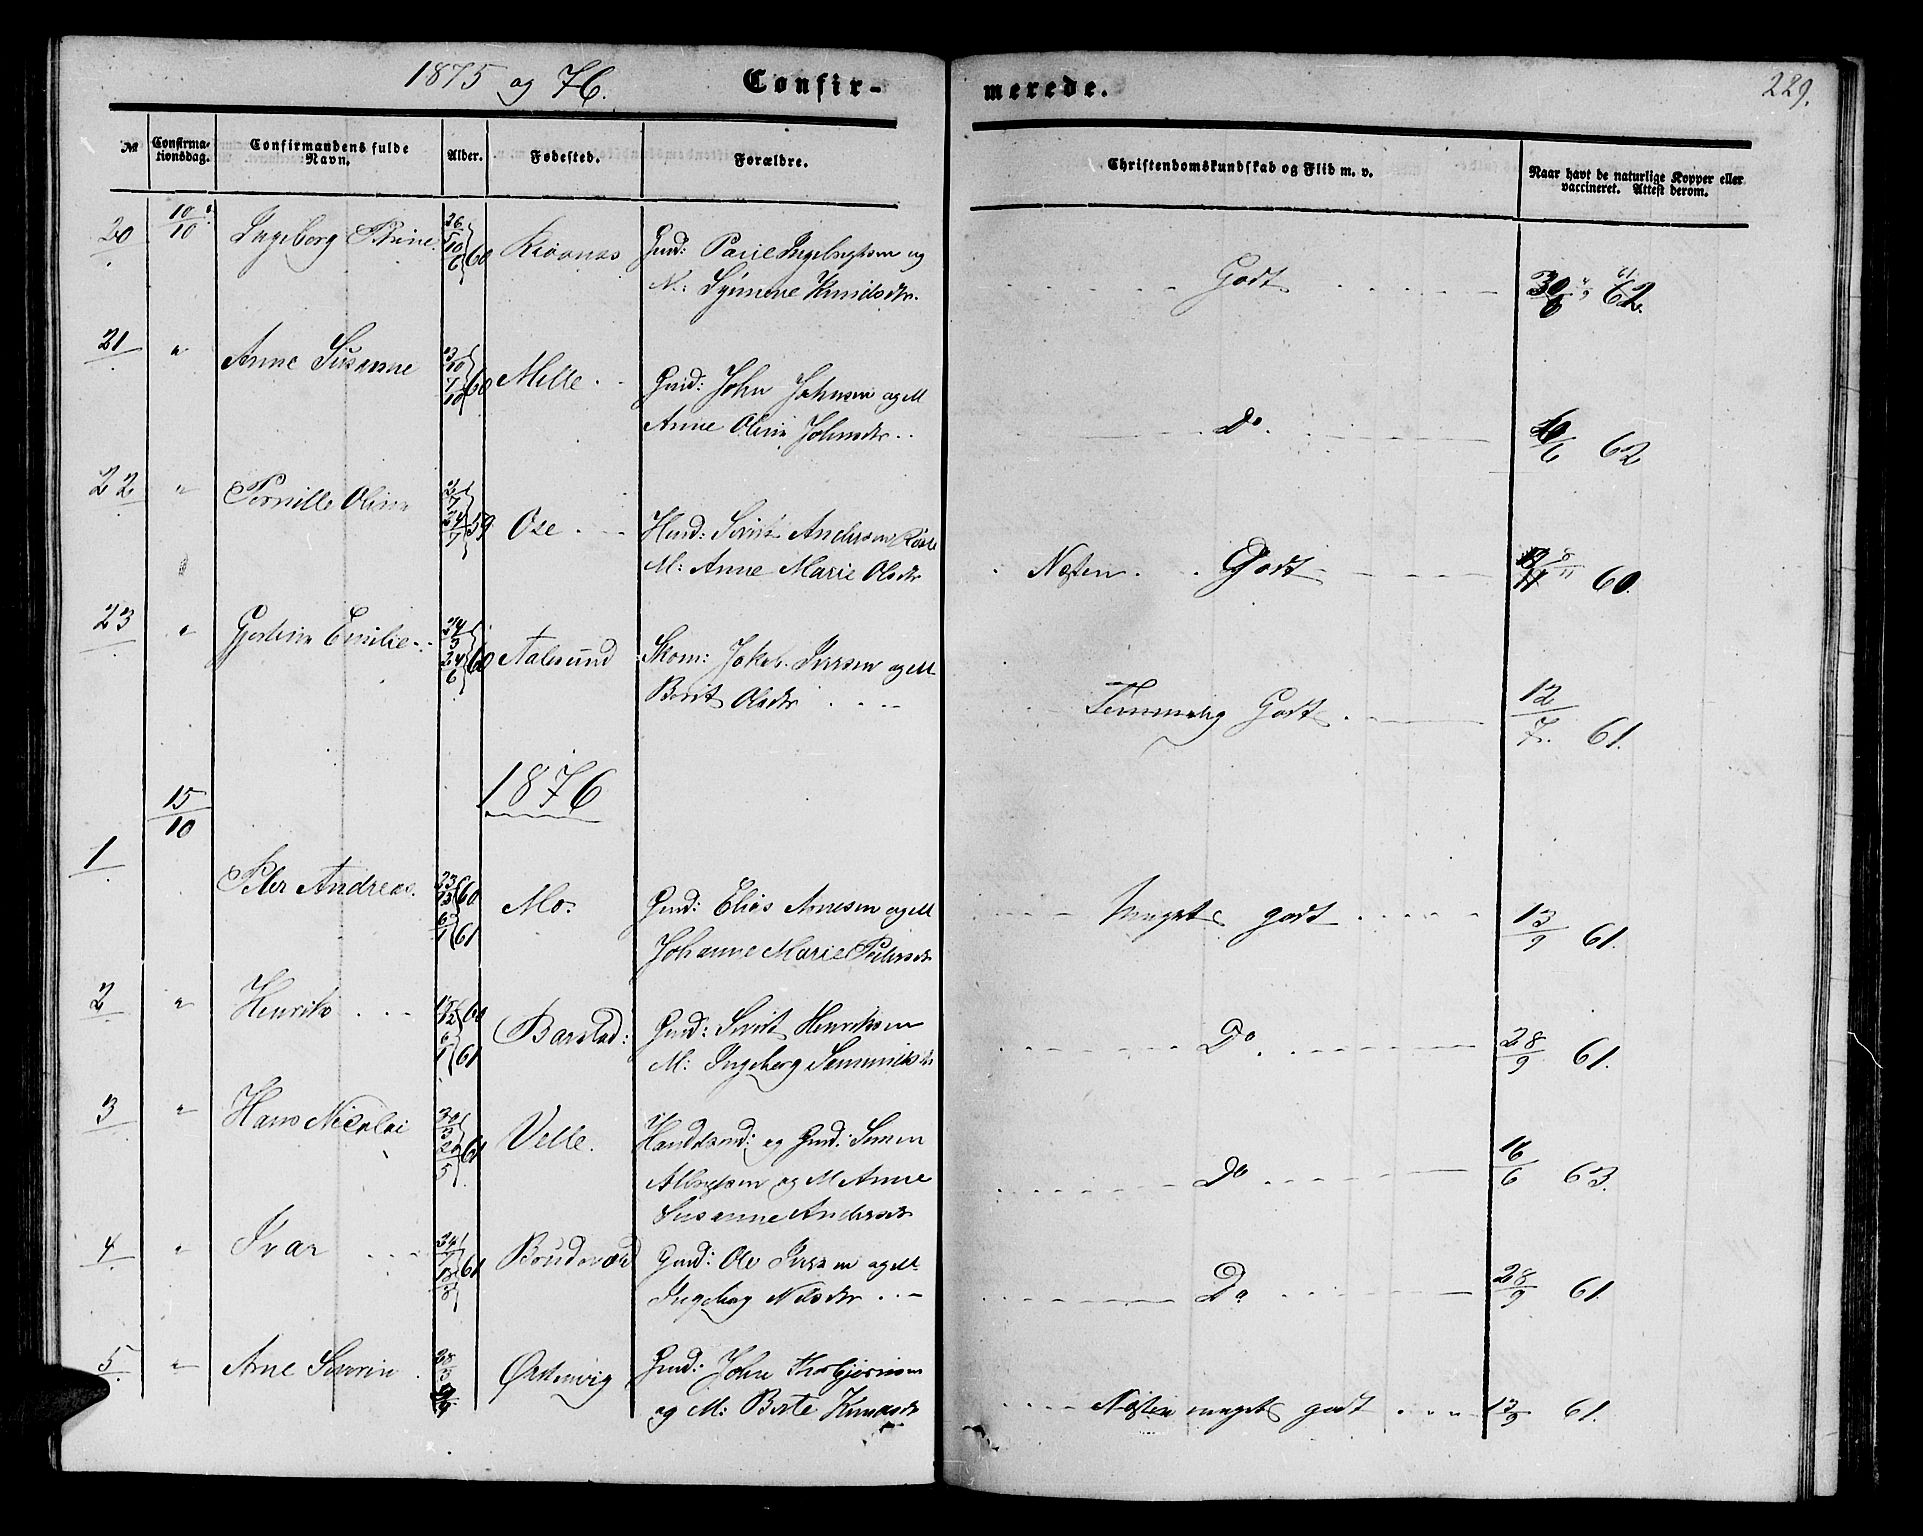 1875 og 76. Confir-
merede. 229.
№ Confirma-tionsdag. Confirmandens fulde Navn. Alder. Fødested. Forældre. Christendomskundskab og Flid m. v. Naar havt de naturlige Kopper eller vaccineret. Attest derom.
20 10/10 Ingeborg 26/5 10/6 60 Gmd: Ingebrigtsen og
M.: Knudsdtr. Godt 62.
21 " Anne Susanne 3/10 7/10 60 Melle Gmd: John Johnsen og M
Anne Oline Johnsdtr. Do. 62
22 " Pernille Oline 3/7 24/7 59 Ose Hmd: Sivert Andersen
M: Anne Marie Olsdtr Næsten Godt 60.
23 " Emilie 24/3 24/6 60 Aalesund Skom: Jakob Iversen og M
Berit Olsdtr Temmelig Godt 12/7 61.
1876
15/10
1 Peter Andreas. 23/12 60 6/1 61 Mo. Gmd: Elias Arnesen og M
Johanne Marie Petersdtr Meget godt 13/9 61.
2 " Henrik 60 6/1 61 Barstad: Gmd: Sivert Henriksen
M: Ingeborg Do. 28/9 61.
3 " Hans Nicolai 61 Velle. og Gmd: Simen
og M Anne
Susanne Andersdtr Do 16/6 63.
4 " Ivar 61 Gmd: Ole Iversen og M
Ingeborg Nilsdtr Do 28/9 61.
5 " Arne Severin 28/3 Ørstenvig Gmd: John Thorbjørnsen
og M: Berte Knudsdtr Næsten meget godt 13/9 61.